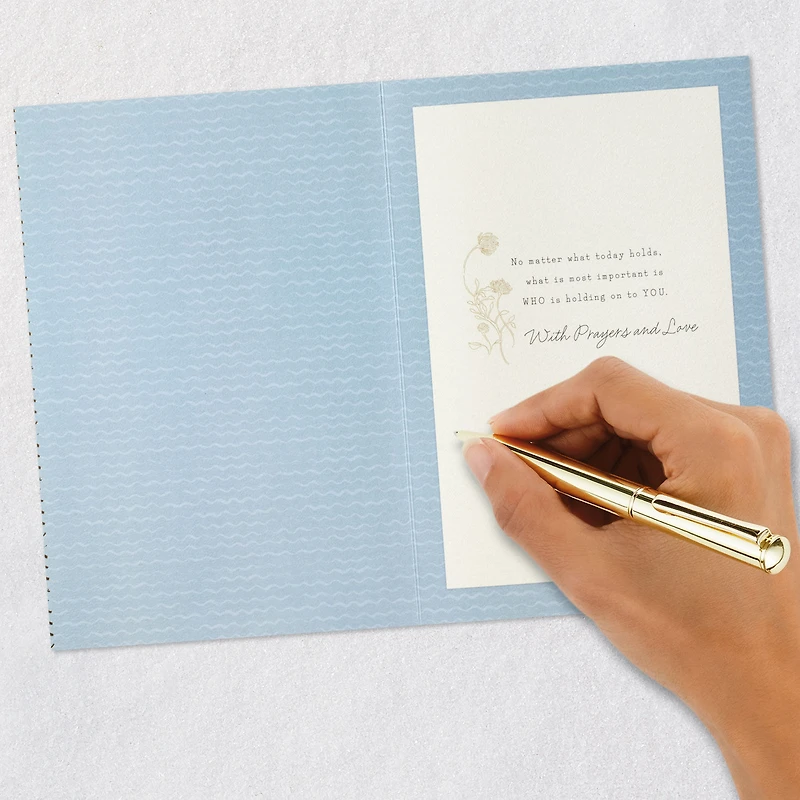 No matter what today holds,
what is most important is
WHO is holding on to YOU.
With Prayers and Love